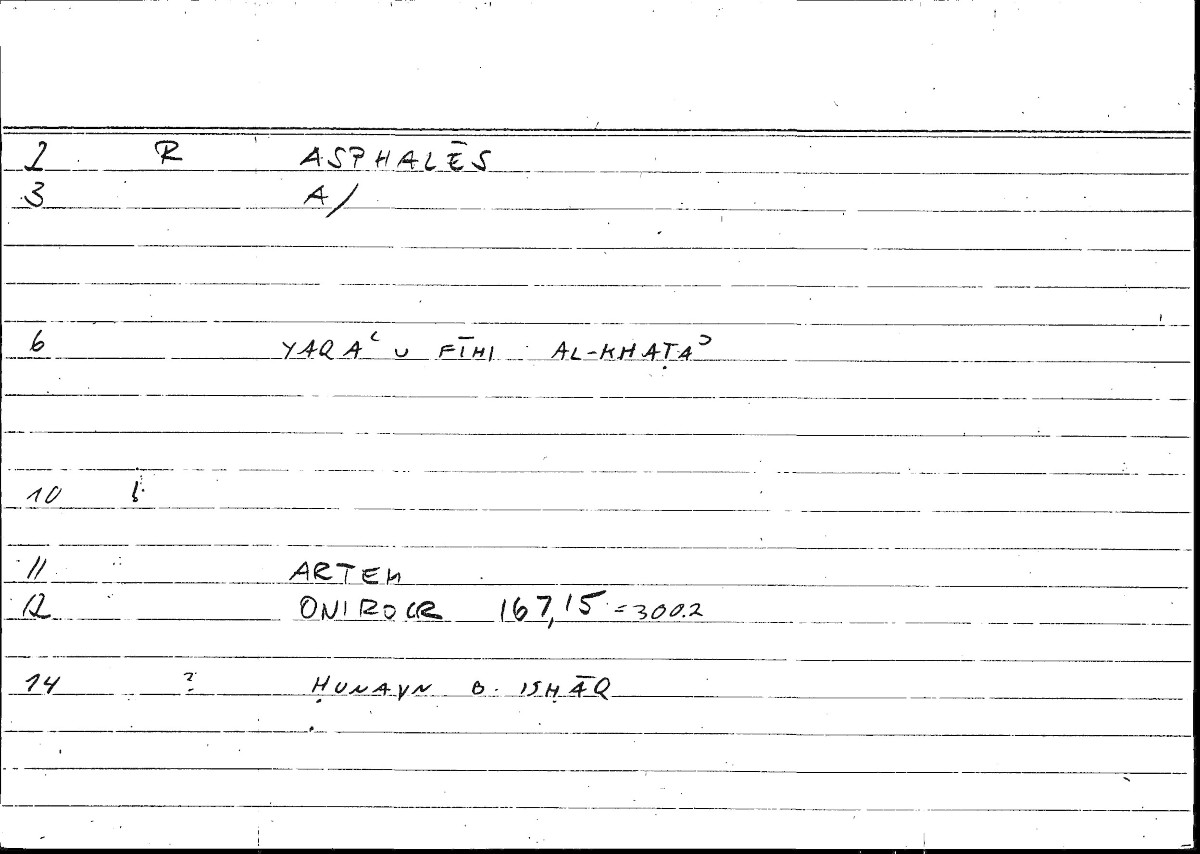 2 R ASPHALĒS
3 A/
6 YAQAʿU FĪHI AL-KHAṬAʾ
10
11 ARTEM
12 ONIROCR 167,15 = 300.2
14 ? ḤUNAYN B. ISḤĀQ